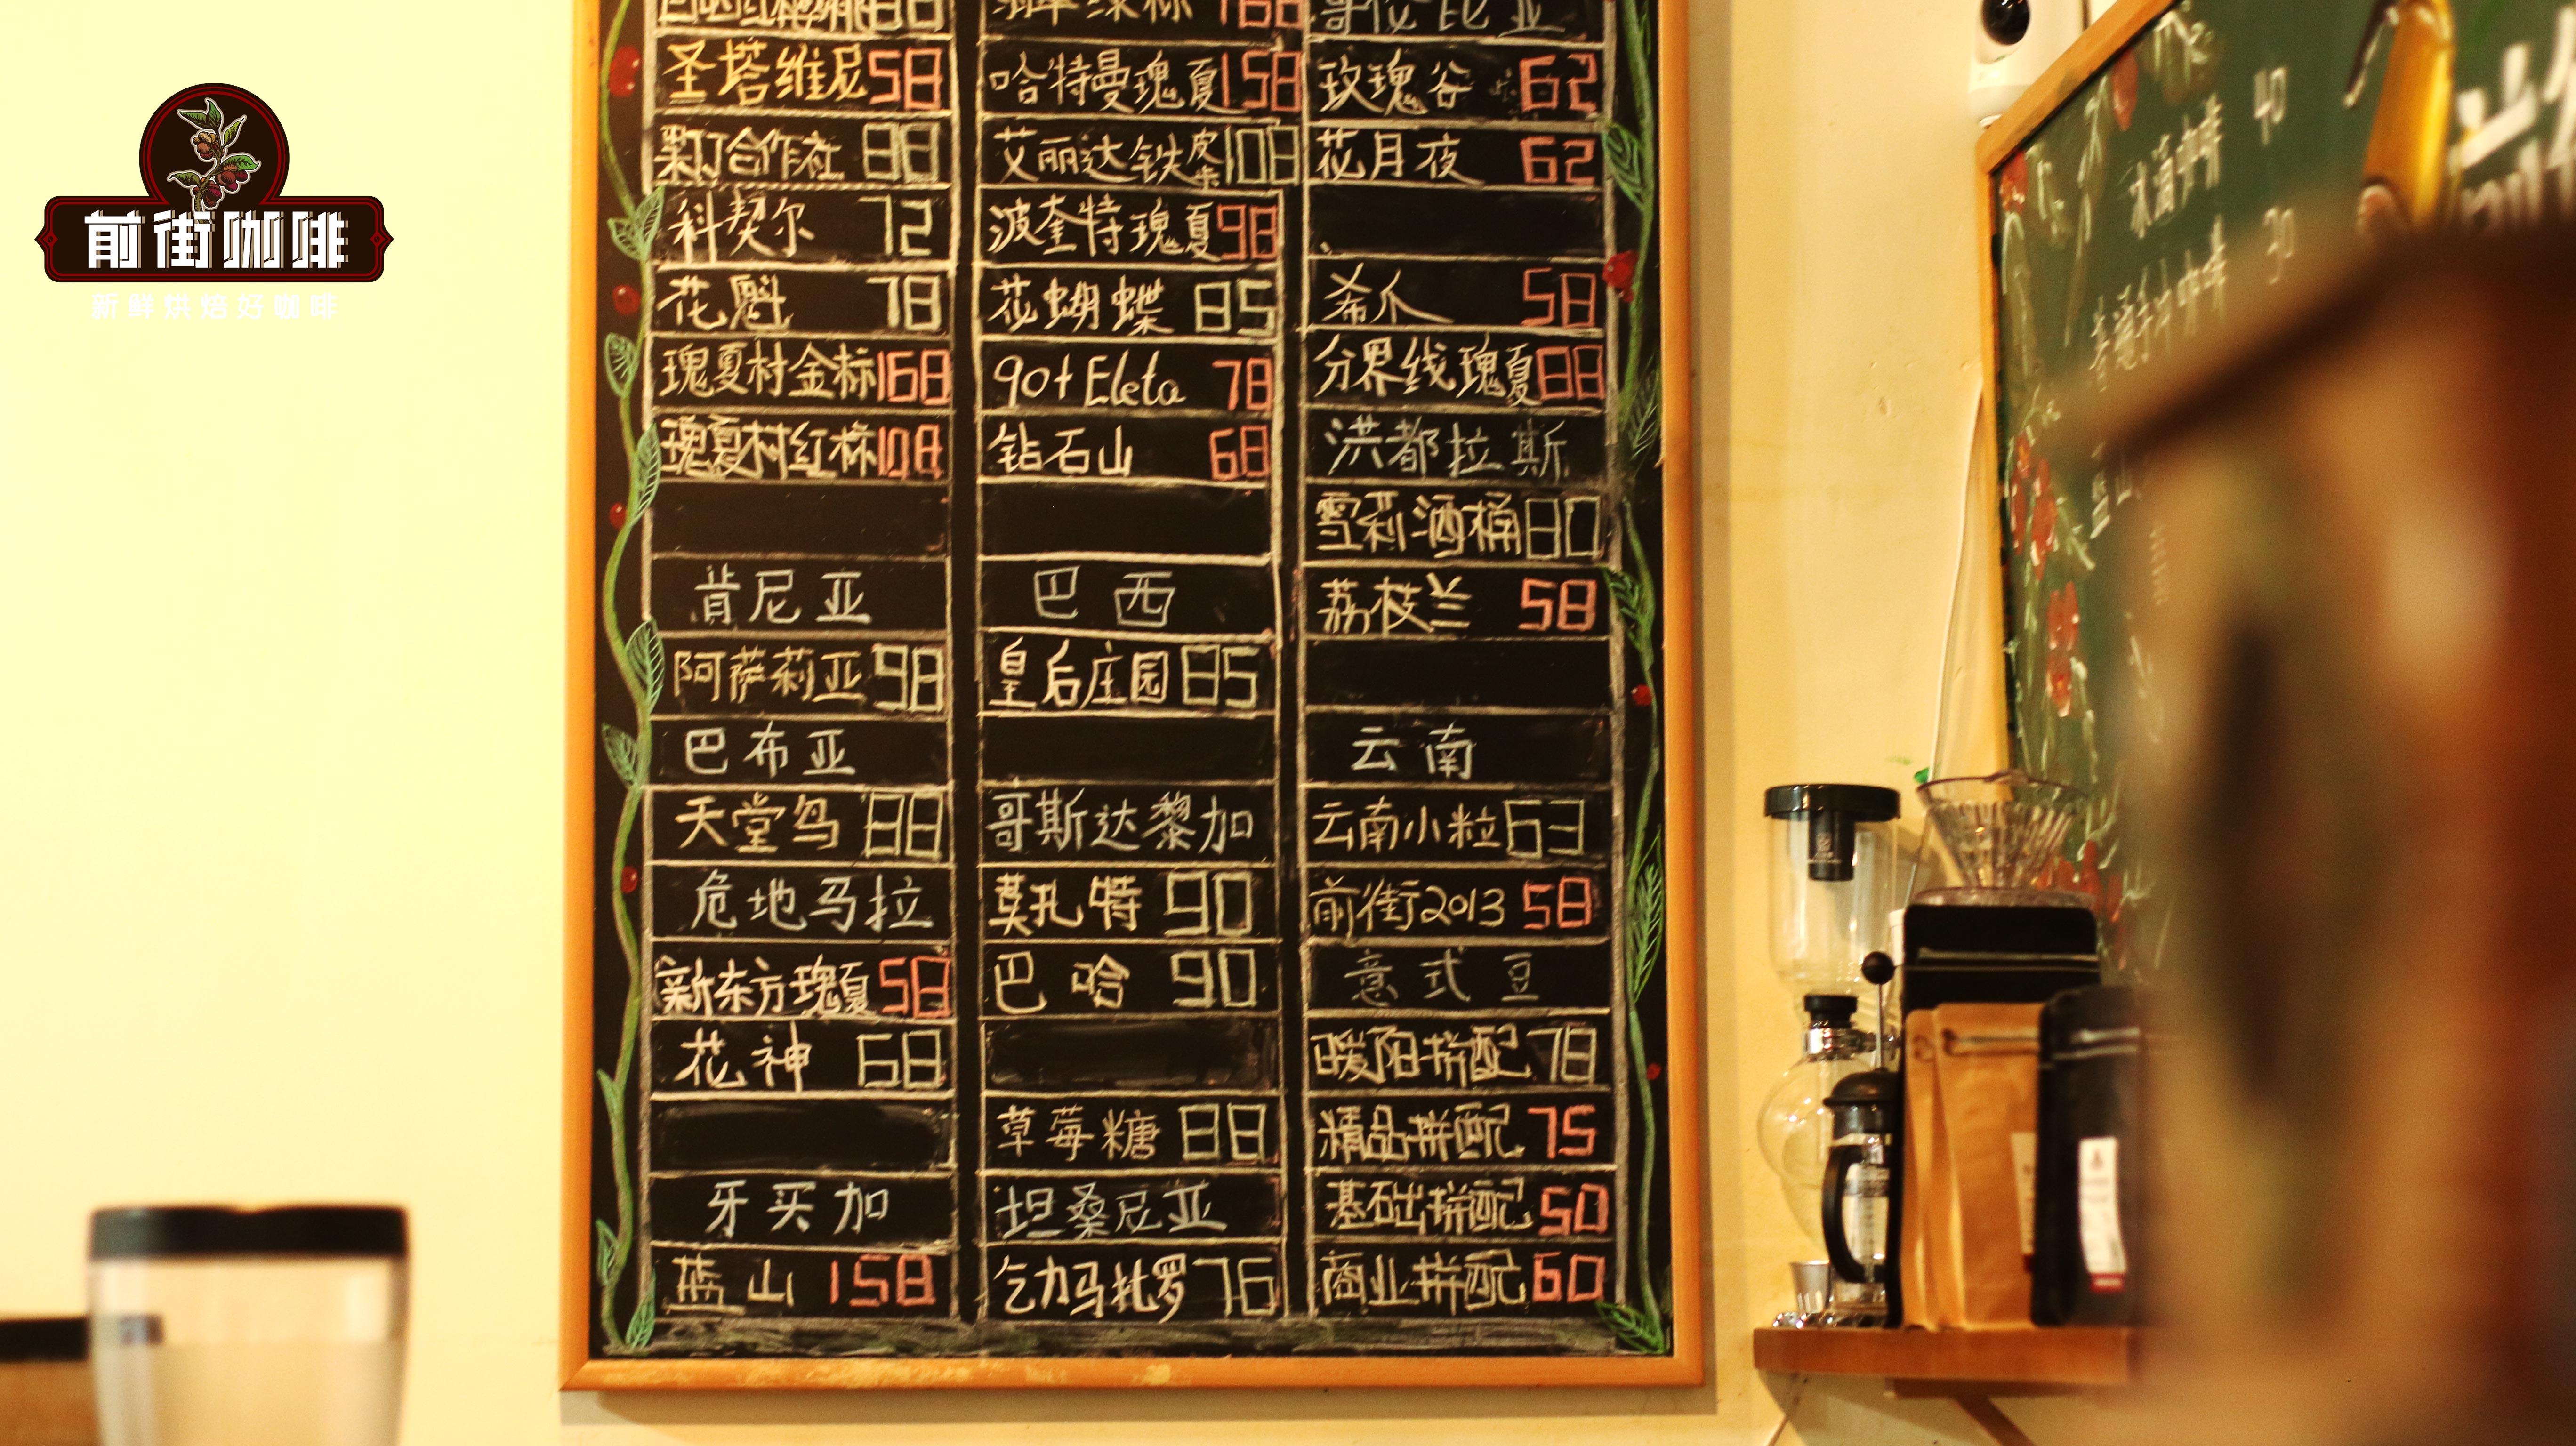 前街咖啡
新鲜烘焙好咖啡
圣塔维尼 58
果丁合作社 88
科契尔 72
花魁 78
瑰夏村金标 168
瑰夏村红标 108
肯尼亚
阿萨莉亚 98
巴布亚
天堂鸟 88
危地马拉
新东方瑰夏 58
花神 68
牙买加
蓝山 158
翡翠绿标 168
哈特曼瑰夏 158
艾丽达铁皮卡 108
波奎特瑰夏 98
花蝴蝶 85
90+ Eleta 78
钻石山 68
巴西
皇后庄园 85
哥斯达黎加
莫扎特 90
巴哈 90
草莓糖 88
坦桑尼亚
乞力马扎罗 76
哥伦比亚
玫瑰谷 62
花月夜 62
希爪 58
分界线瑰夏 88
洪都拉斯
雪莉酒桶 80
荔枝兰 58
云南
云南小粒 63
前街2013 58
意式豆
暖阳拼配 78
精品拼配 75
基础拼配 50
商业拼配 60
冰滴咖啡 40